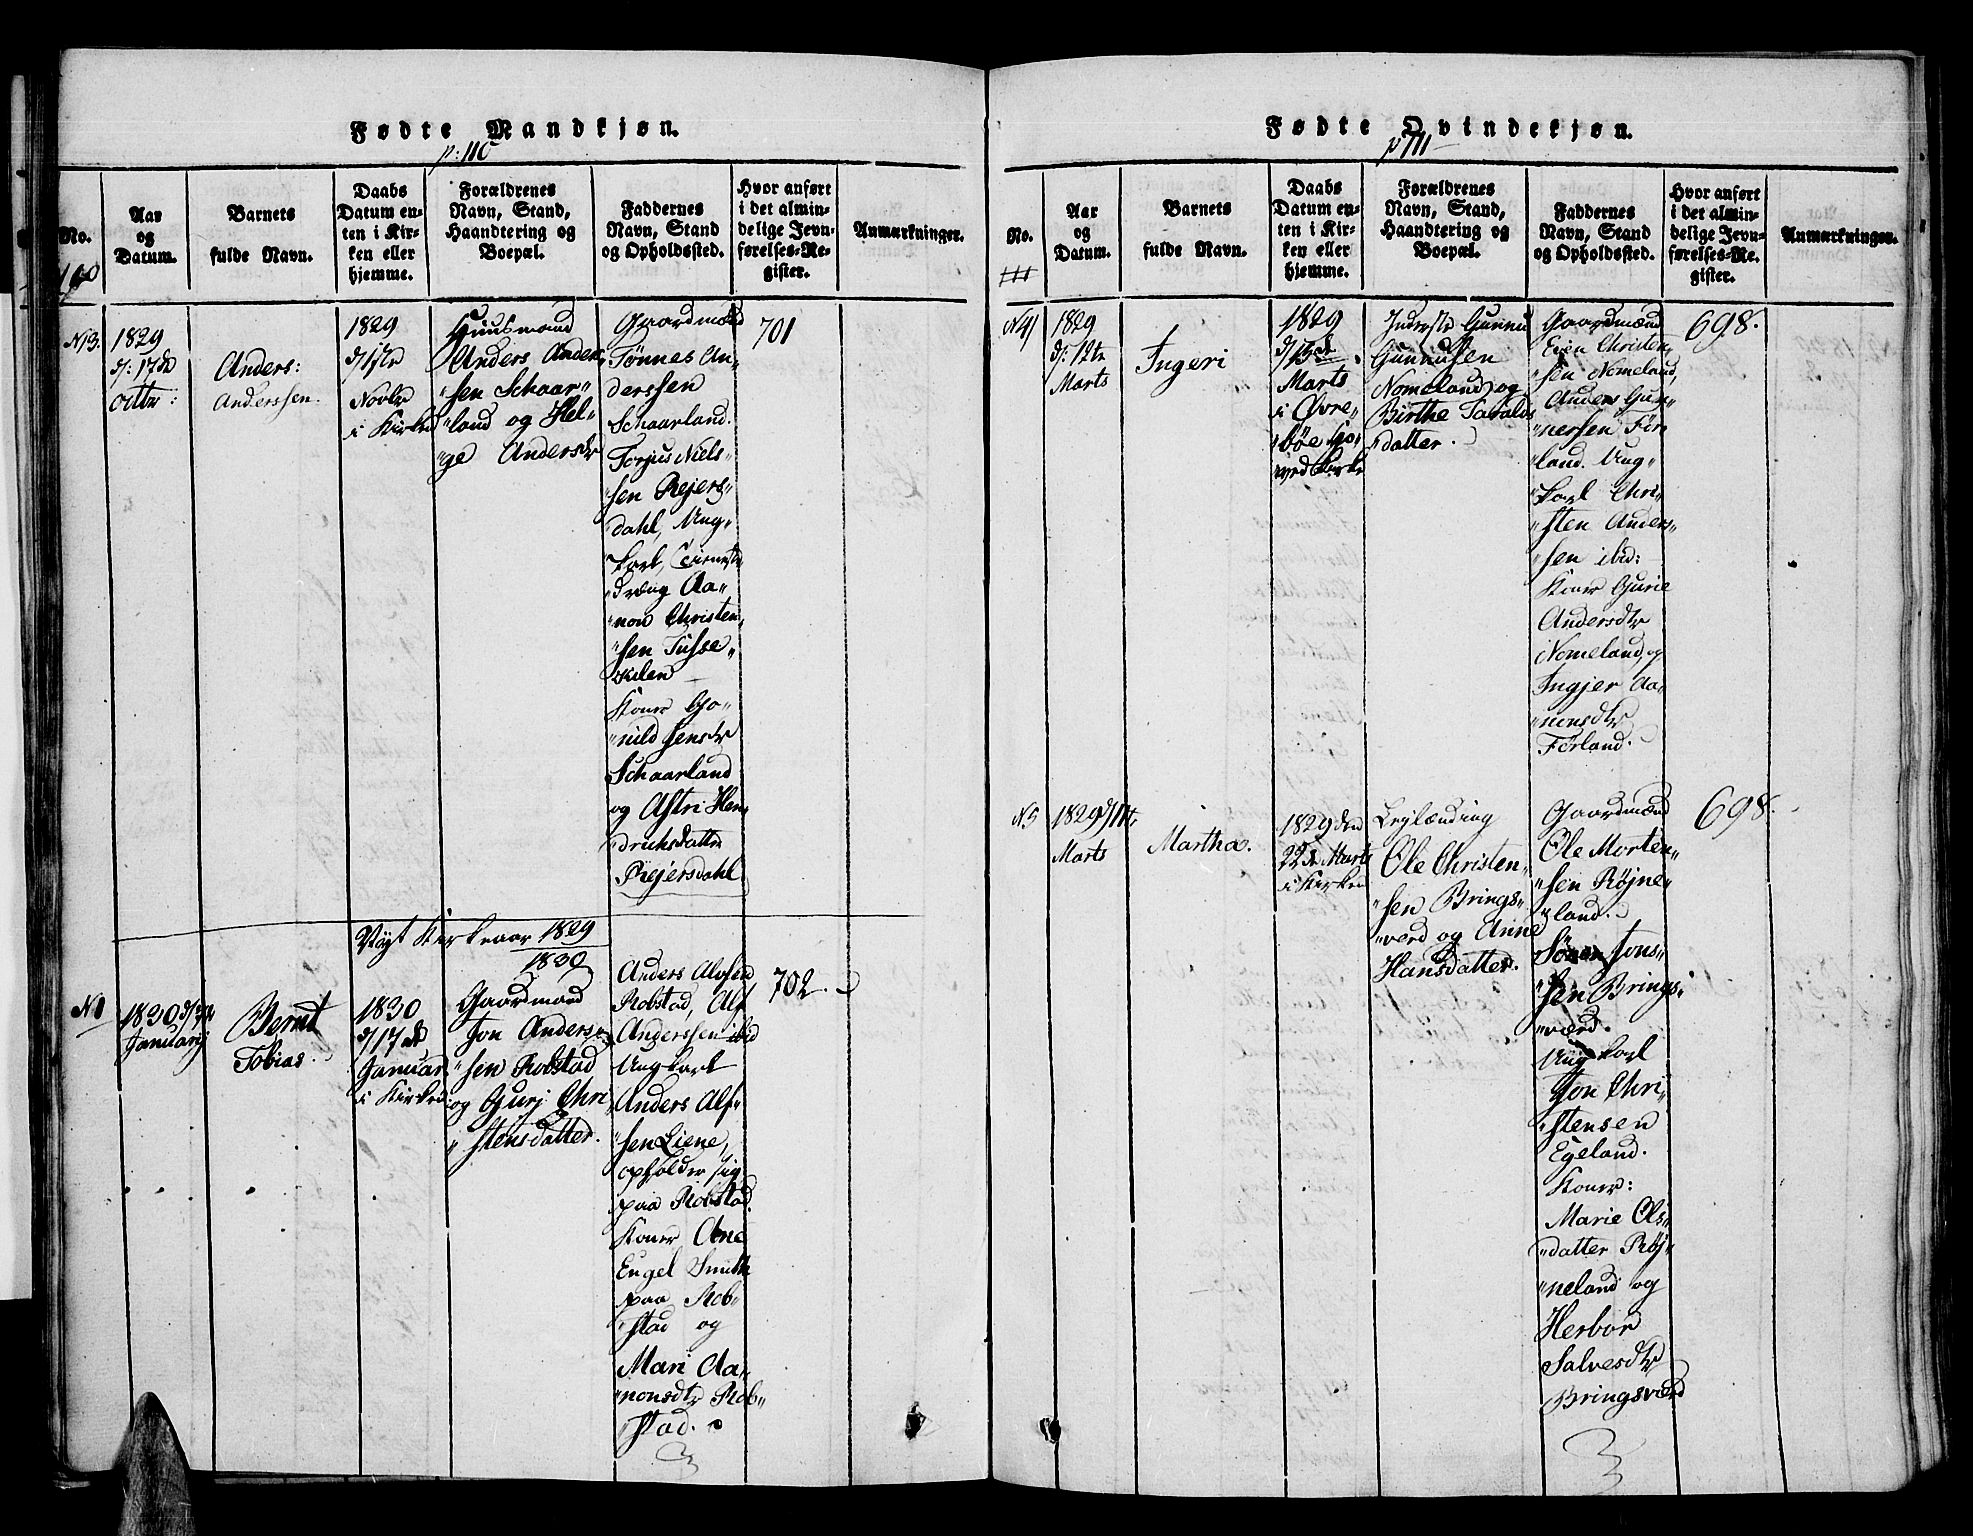 Fødte Mandkjøn.
p: 110
No.
Aar
og
Datum.
Barnets
fulde Navn.
Daabs
Datum en-
ten i Kir-
ken eller
hjemme.
Forældrenes
Navn, Stand,
Haandtering og
Boepæl.
Faddernes
Navn, Stand
og Opholdssted.
Hvor anført
i det almin-
delige Jevn-
førelses-Re-
gister.
Anmærkninger.
N 3.
1829
d: 17de
Octbr:
Anders:
Anderssen.
1829
d/1ste
Novbr
i Kirken
Huusmand
Anders Ander-
"sen Schaar"
"land og Hel-
"ge Andersdr
Gaardmænd
Tønnes An-
derssen
Schaarland.
Torjus Niels-
"sen Rejers"
"dahl, Ung-
"karl,
"dreng Aa-
"non Christen-
"sen Tusse"
"kilen
Koner Go-
"nild Jensdr
Schaarland
og Astri Hen-
"drichsdatter
Rejersdahl
701
Nyt Kirkeaar 1829
1830
N 1
1830
Januarij
Bernt
Tobias.
1830
d/17de
Januar
i Kirken
Gaardmand
Jon Anders-
"sen Robstad
og Gurj Chri-
"stensdatter.
Anders Alvsen
Robstad, Alf
Anderssen ibid
Ungkarl
Anders Alf-
"sen Liene,
opholder sig
paa Robstad.
Koner Ane
Engel Smith
paa Rob-
"stad og
Mari Aa-
"nonsdtr Rob-
"stad.
702.
Fødte Qvindekjøn.
p 111
No.
111
Aar
og
Datum.
Barnets
fulde Navn.
Daabs
Datum en-
ten i Kir-
ken eller
hjemme.
Forældrenes
Navn, Stand,
Haandtering og
Boepæl.
Faddernes
Navn, Stand
og Opholdssted.
Hvor anført
i det almin-
delige Jevn-
førelses-Re-
gister.
Anmærkninger.
N 4
1829
d: 12te
Marts
Ingeri
1829
d/15de
Marts
i Øvre-
"bøe Ho-
"ved Kirke
Inderste Gunnu
Gunnusen
Nomeland og
Birthe Taralds
"datter.
Gaardmænd
Even Christen-
"sen Nomeland,
Anders Gun-
"nersen Før-
"land. Ung-
"karl Chri-
"sten Anders-
"sen ibid:
Koner Gurie
Andersdtr
Nomeland, og
Ingjer Aa-
"nonsdtr
Førland.
698.
N 5
1829
Marts
Martha.
1829 den
22de Marts
i Kirken
Lejlænding
Ole Christen-
"sen Brings-
"værd og Anne
Hansdatter.
Gaardmænd
Ole Morten-
"sen Røjne-
"land.
Søren Jons-
"sen Brings-
"værd.
Ungkarl
Jon Chri-
"stensen
Egeland.
Koner:
Marie Ols-
"datter Røj-
"neland og
Herbor
Salvesdtr
Bringsværd
698.